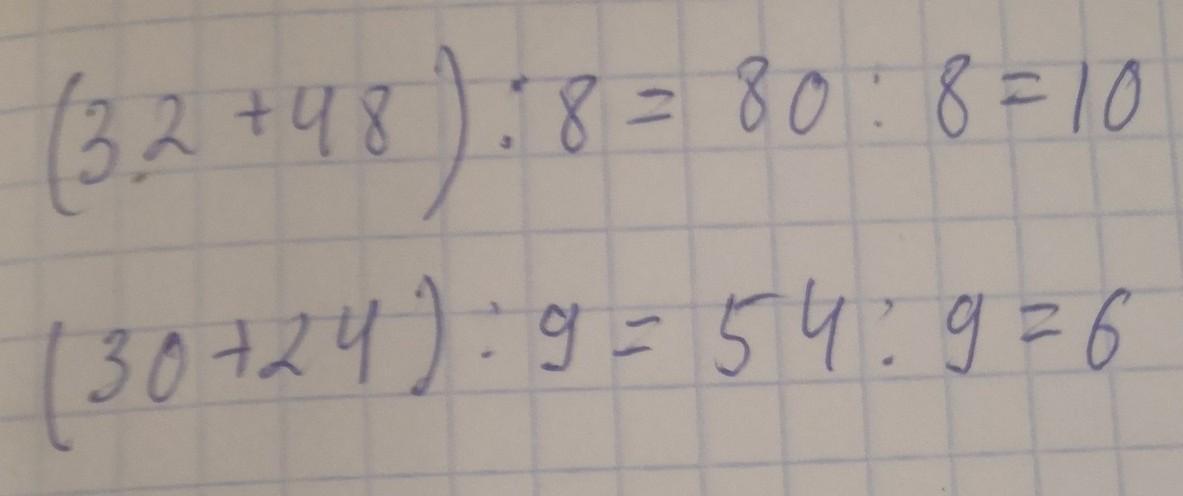 (32+48):8=80:8=10
(30+24):9=54:9=6